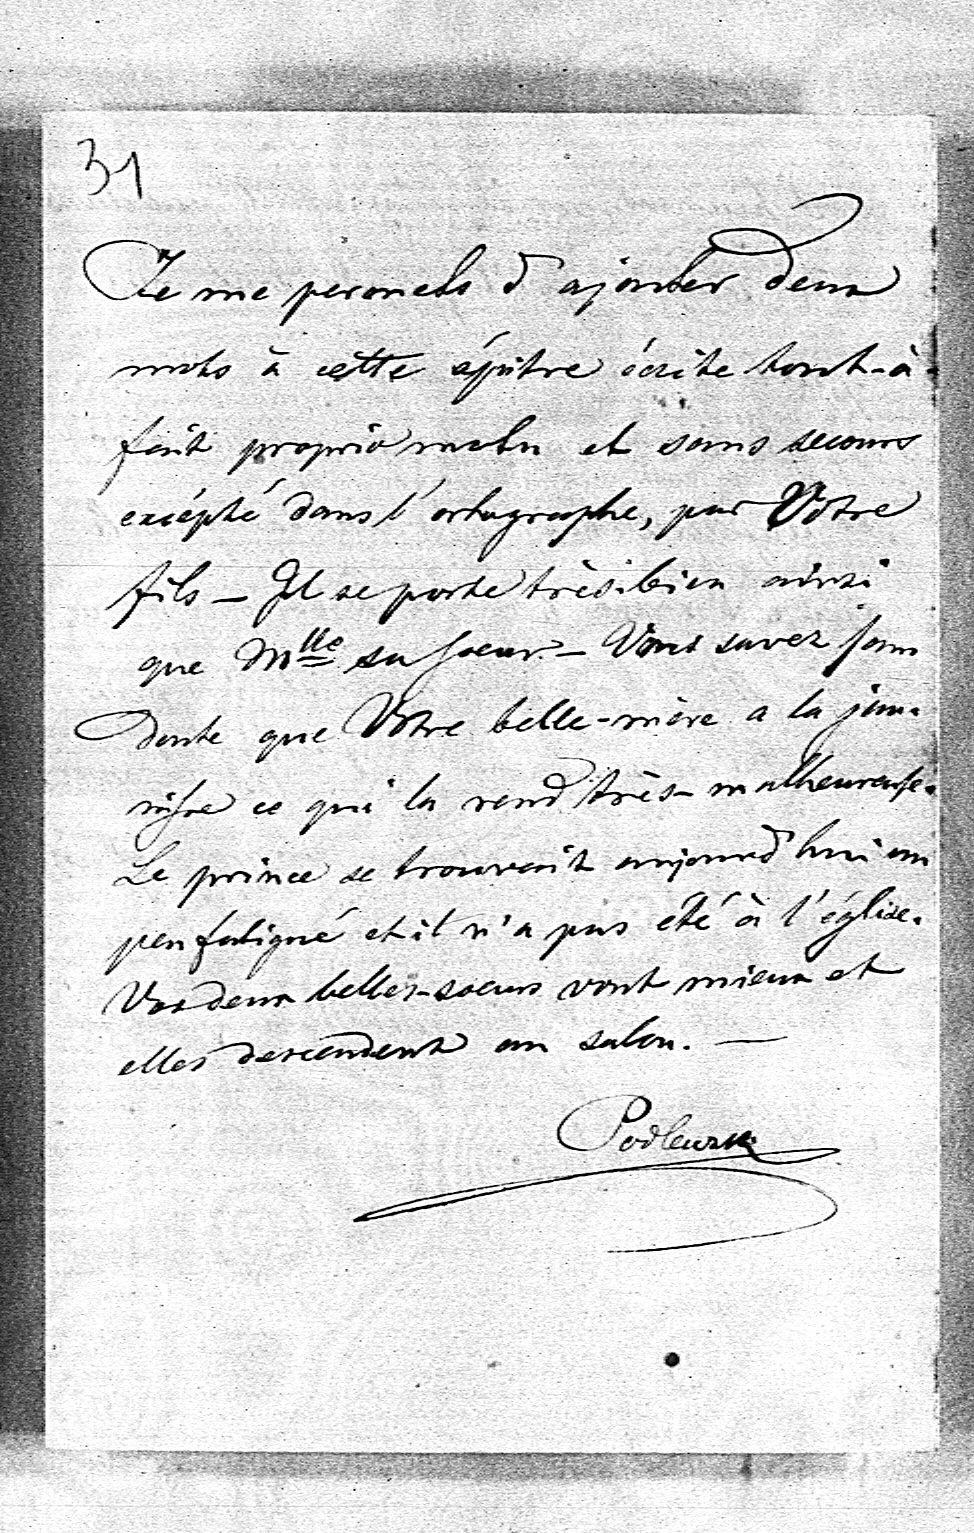 31
Je me permets d'ajouter deux
mots à cette épitre écrite tout-à-
fait proprio motu et sans secours
excépté dans l'ortographe, par Votre
fils — Il se porte très bien ainsi
que Mlle sa soeur. — Vous savez sans
doute que Votre belle-mère a la jau-
nisse ce qui la rend très-malheureuse.
Le prince se trouvait aujourd'hui un
peu fatigué et il n'a pas été à l'église.
Vos deux belles-soeurs vont mieux et
elles descendent au salon. —
Podlewski